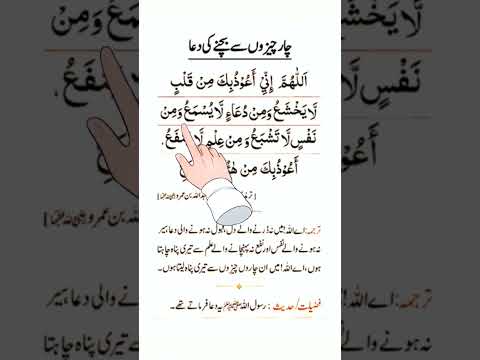 چار چیزوں سے بچنے کی دعا
اَللّٰهُمَّ اِنِّيْٓ اَعُوْذُبِكَ مِنْ قَلْبٍ
لَّا يَخْشَعُ وَمِنْ دُعَاءٍ لَّا يُسْمَعُ وَمِنْ
نَفْسٍ لَّا تَشْبَعُ وَمِنْ عِلْمٍ لَّا يَنْفَعُ،
اَعُوْذُبِكَ مِنْ
عبداللہ بن عمرو رضی اللہ عنہما]
ترجمہ: اے اللہ! میں نہ ڈرنے والے دل، قبول نہ ہونے والی دعا، سیر
نہ ہونے والے نفس اور نفع نہ پہنچانے والے علم سے تیری پناہ چاہتا
ہوں، اے اللہ! میں ان چاروں چیزوں سے تیری پناہ لیتا ہوں۔
فضیلت/حدیث: رسول اللہ ﷺ یہ دعا فرماتے تھے۔